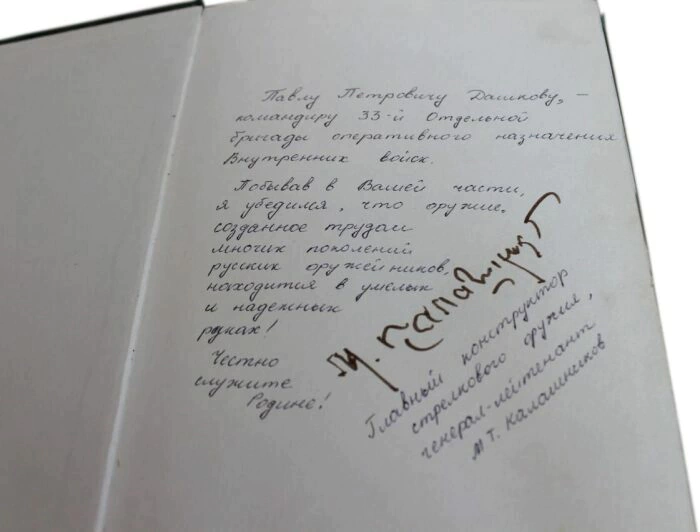 Павлу Петровичу Дашкову, –
командиру 33-й Отдельной
бригады оперативного назначения
Внутренних войск.
Побывав в Вашей части,
я убедился, что оружие,
созданное трудами
многих поколений
русских оружейников,
находится в умелых
и надежных
руках!
Честно
служите
Родине!
М. Калашников
Главный конструктор
стрелкового оружия,
генерал-лейтенант
М Т. Калашников